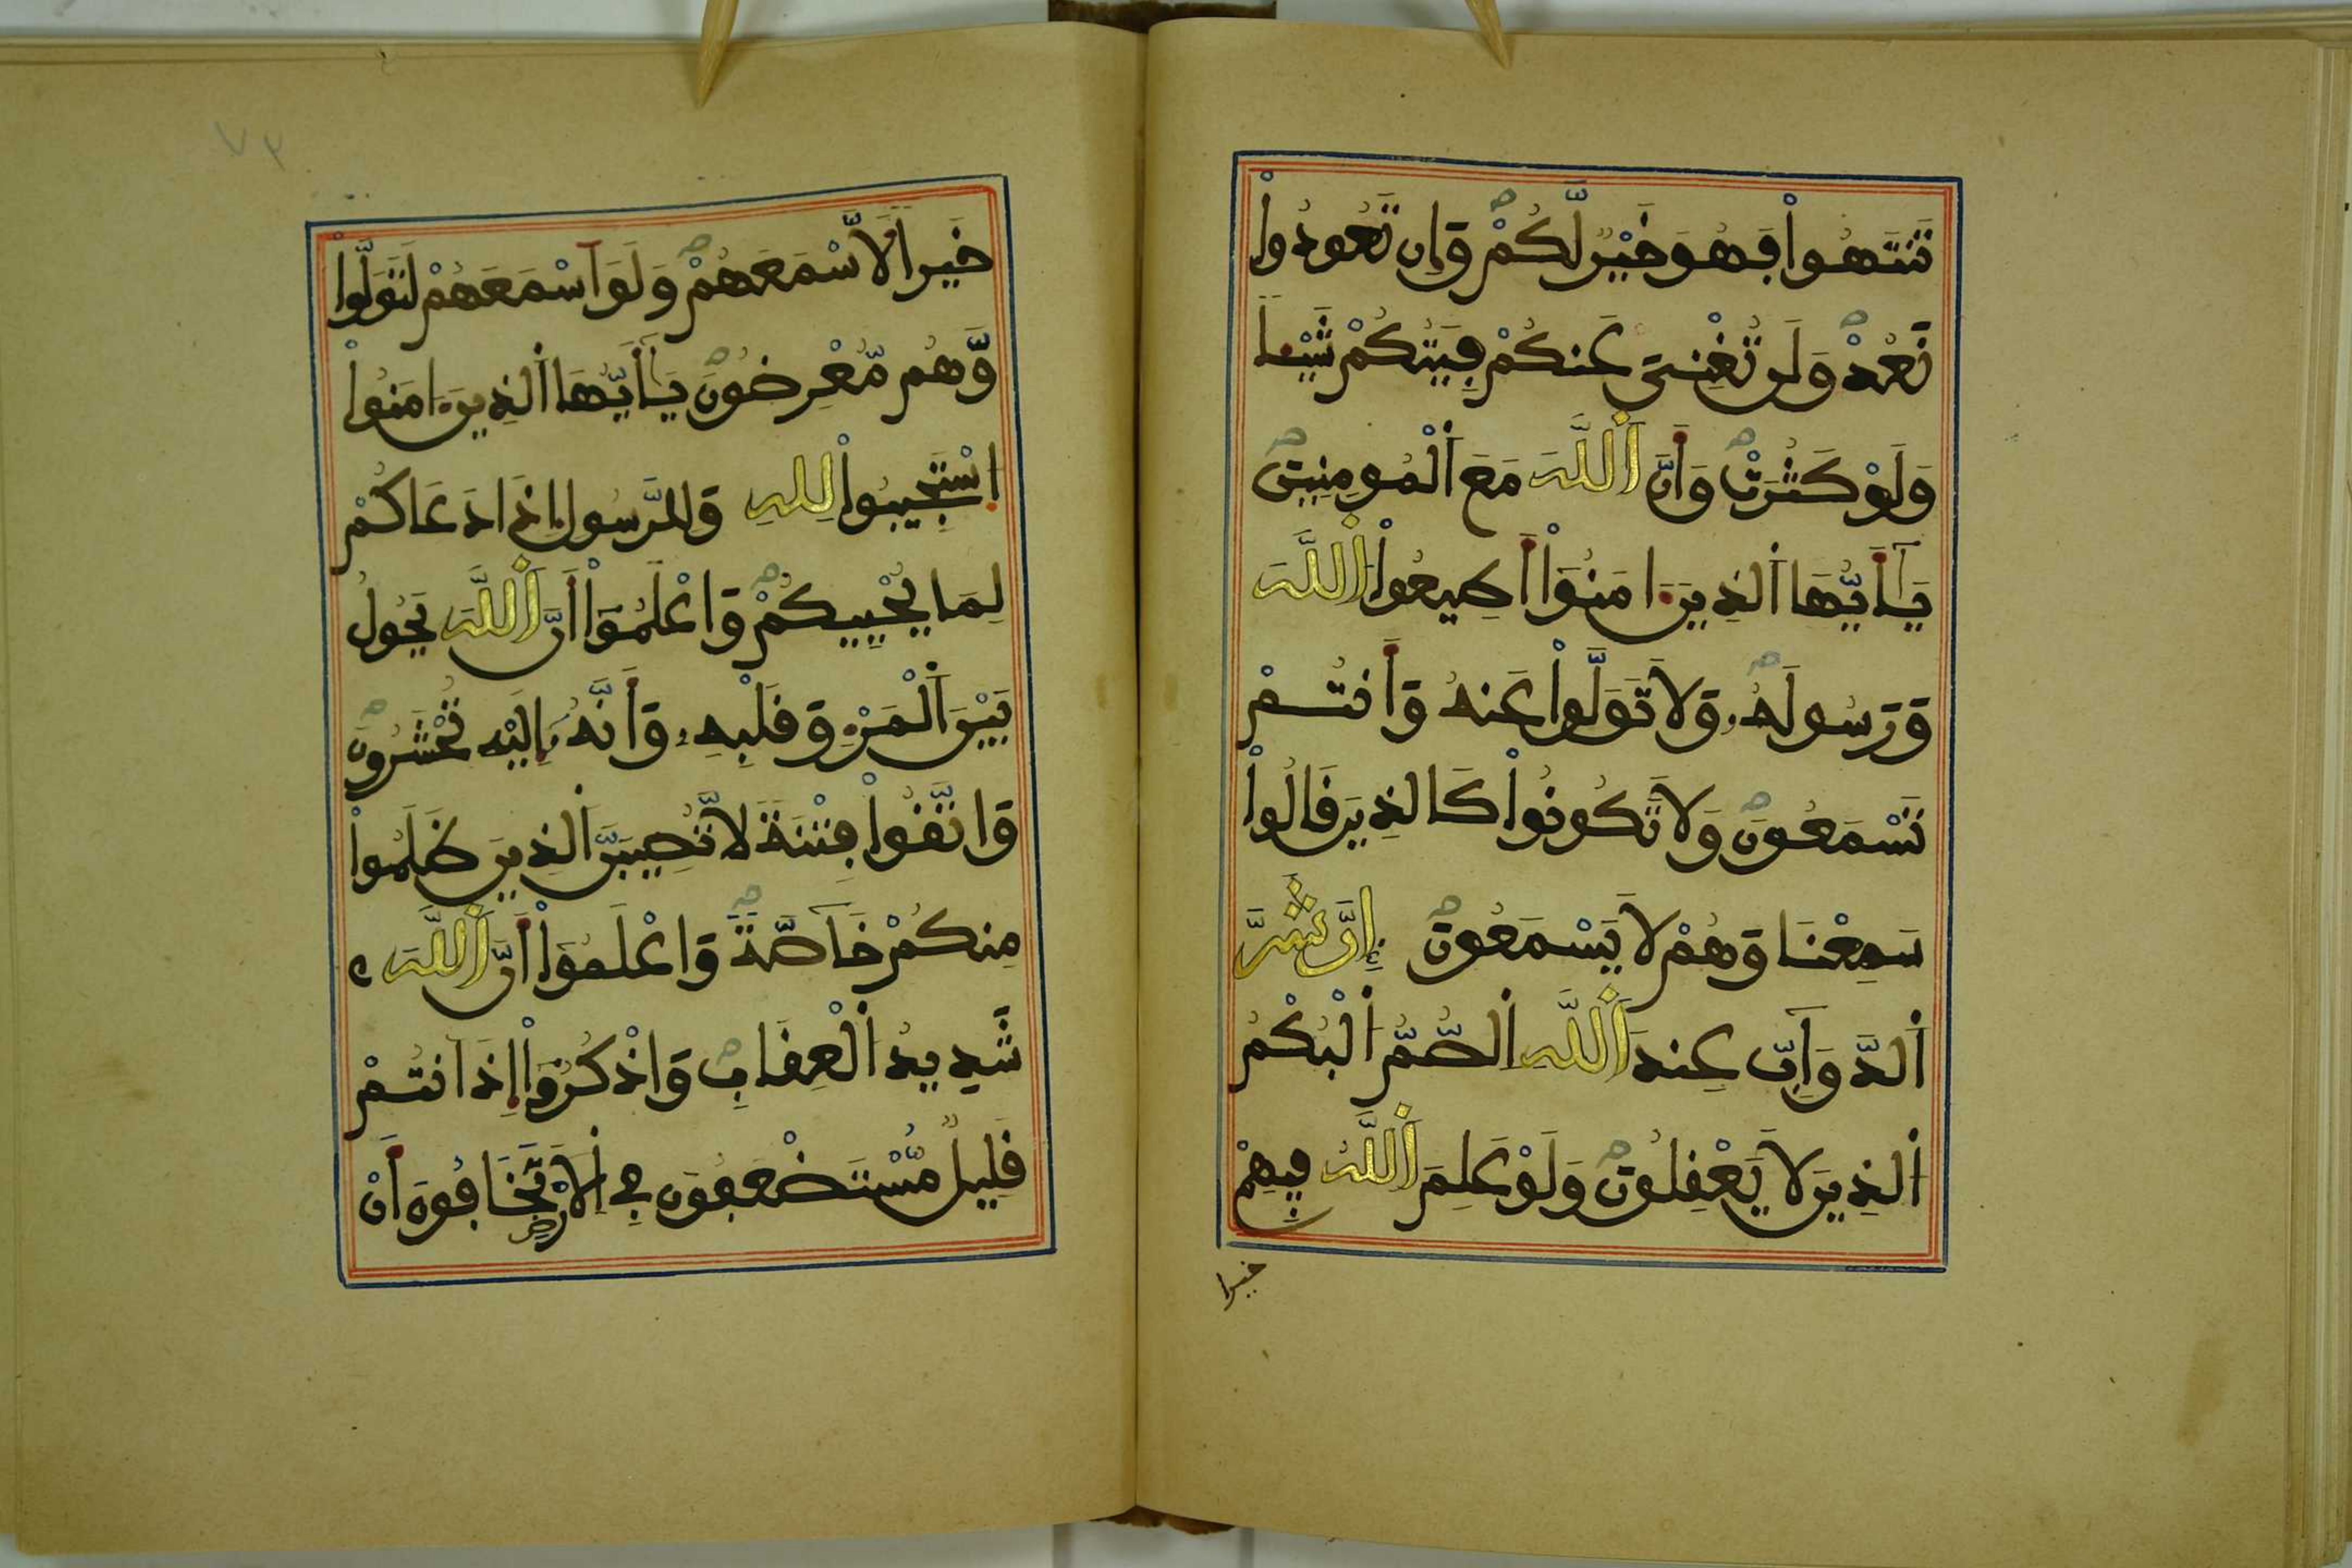 تَنتَهُواْ فَهُوَ خَيْرٌ لَّكُمْ وَإِن تَعُودُواْ
نَعُدْ وَلَن تُغْنِيَ عَنكُمْ فِئَتُكُمْ شَيْـاً
وَلَوْ كَثُرَتْ وَأَنَّ اَللَّهَ مَعَ اَلْمُومِنِينَ
يَـٰأَيُّهَا اَلذِينَ ءَامَنُواْ أَطِيعُواْ اُللَّهَ
وَرَسُولَهُۥ وَلاَ تَوَلَّوْاْ عَنْهُ وَأَنتُمْ
تَسْمَعُونَ وَلاَ تَكُونُواْ كَالذِينَ قَالُواْ
سَمِعْنَا وَهُمْ لاَ يَسْمَعُونَ إِنَّ شَرَّ
اَلدَّوَآبِّ عِندَ اَللَّهِ اِلصُّمُّ اُلْبُكْمُ
اُلذِينَ لاَ يَعْقِلُونَ وَلَوْ عَلِمَ اَللَّهُ فِيهِمْ
خيرا
٧٣
خَيْراً لَّأَسْمَعَهُمْ وَلَوَ اَسْمَعَهُمْ لَتَوَلَّواْ
وَّهُم مُّعْرِضُونَ يَـٰأَيُّهَا اَلذِينَ ءَامَنُواْ
اُسْتَجِيبُواْ لِلهِ وَلِلرَّسُولِ إِذَا دَعَاكُمْ
لِمَا يُحْيِيكُمْ وَاعْلَمُواْ أَنَّ اَللَّهَ يَحُولُ
بَيْنَ اَلْمَرْءِ وَقَلْبِهِۦ وَأَنَّهُۥ إِلَيْهِ تُحْشَرُونَ
وَاتَّقُواْ فِتْنَةً لاَّ تُصِيبَنَّ اَلذِينَ ظَلَمُواْ
مِنكُمْ خَآصَّةً وَاعْلَمُواْ أَنَّ اَللَّهَ
شَدِيدُ اُلْعِقَابِ وَاذْكُرُواْ إِذَ اَنتُمْ
قَلِيلٌ مُّسْتَضْعَفُونَ فِي اِلاَرْضِ تَخَافُونَ أَنْ